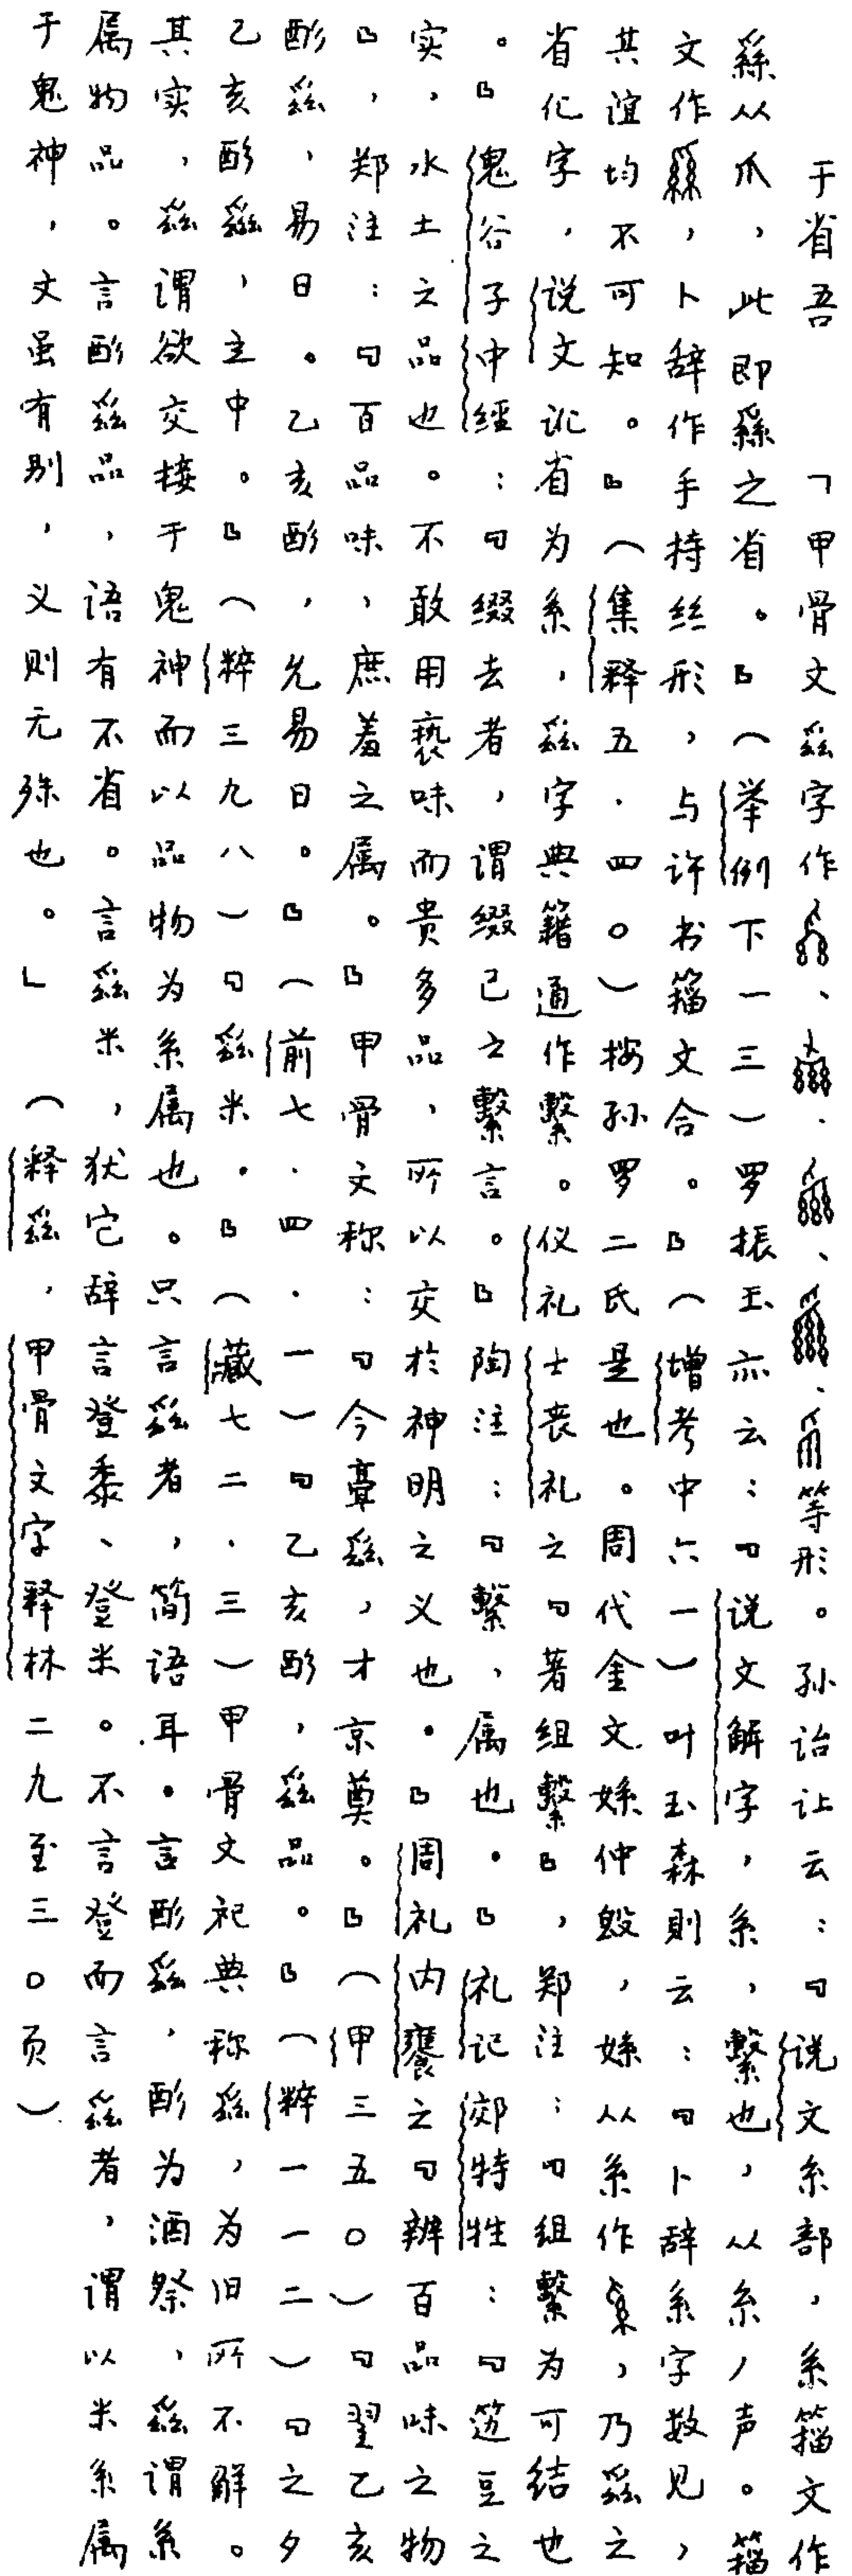 于省吾　「甲骨文𢇁字作、、、、等形。孙诒让云：『说文系部，系籀文作
𦃟从爪，此即𦃟之省。』（举例下一三）罗振玉亦云：『说文解字，系，繫也，从糸，丿声。籀
文作，卜辞作手持丝形，与许书籀文合。』（增考中六一）叶玉森则云：『卜辞系字数见，
其谊均不可知。』（集释五·四〇）按孙罗二氏是也。周代金文㜎仲毁，㜎从系作，乃𢇁之
省化字，说文讹省为系，𢇁字典籍通作繫。仪礼士丧礼之『著组繫』，郑注：『组繫为可结也
。』鬼谷子中经：『缀去者，谓缀己之繫言。』陶注：『繫，属也。』礼记郊特牲：『笾豆之
实，水土之品也。不敢用亵味而贵多品，所以交於神明之义也。』周礼内饔之『辨百品味之物
』，郑注：『百品味，庶羞之属。』甲骨文称：『今𩫖𢇁，才京奠。』（甲三五〇）『翌乙亥
酻𢇁，易日。乙亥酻，允易日。』（前七·四·一）『乙亥酻，𢇁品。』（粹一一二）『之夕
乙亥酻𢇁，立中。』（粹三九八）『𢇁米。』（藏七二·三）甲骨文祀典称𢇁，为旧所不解。
其实，𢇁谓欲交接于鬼神而以品物为系属也。只言𢇁者，简语耳。言酻𢇁，酻为酒祭，𢇁谓系
属物品。言酻𢇁品，语有不省。言𢇁米，犹它辞言登黍、登米。不言登而言𢇁者，谓以米系属
于鬼神，文虽有别，义则无殊也。」（释𢇁，甲骨文字释林二九至三〇页）